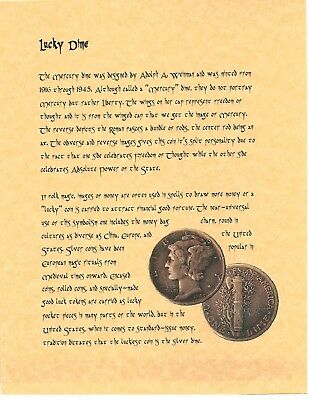 Lucky Dime
The Mercury dime was designed by Adolph A. Weinman and was minted from
1916 through 1945. Although called a "Mercury" dime, they do not portray
Mercury but rather Liberty. The wings on her cap represent freedom of
thought and it is from the winged cap that we get the image of Mercury.
The reverse depicts the Roman fasces a bundle of rods, the center rod being an
ax. The obverse and reverse images gives this coin it's split personality due to
the fact that one side celebrates Freedom of Thought while the other side
celebrates Absolute Power of the State.
In folk magic, images of money are often used in spells to draw more money or a
"lucky" coin is carried to attract financial good fortune. The near-universal
use of this symbolism one includes the money bag charm, found in
cultures as diverse as China, Europe, and the United
States. Silver coins have been popular in
European magic rituals from
Medieval times onward. Creased
coins, rolled coins, and specially-made
good luck tokens are carried as lucky
pocket pieces in many parts of the world, but in the
United States, when it comes to standard-issue money,
tradition dictates that the luckiest coin is the silver dime.